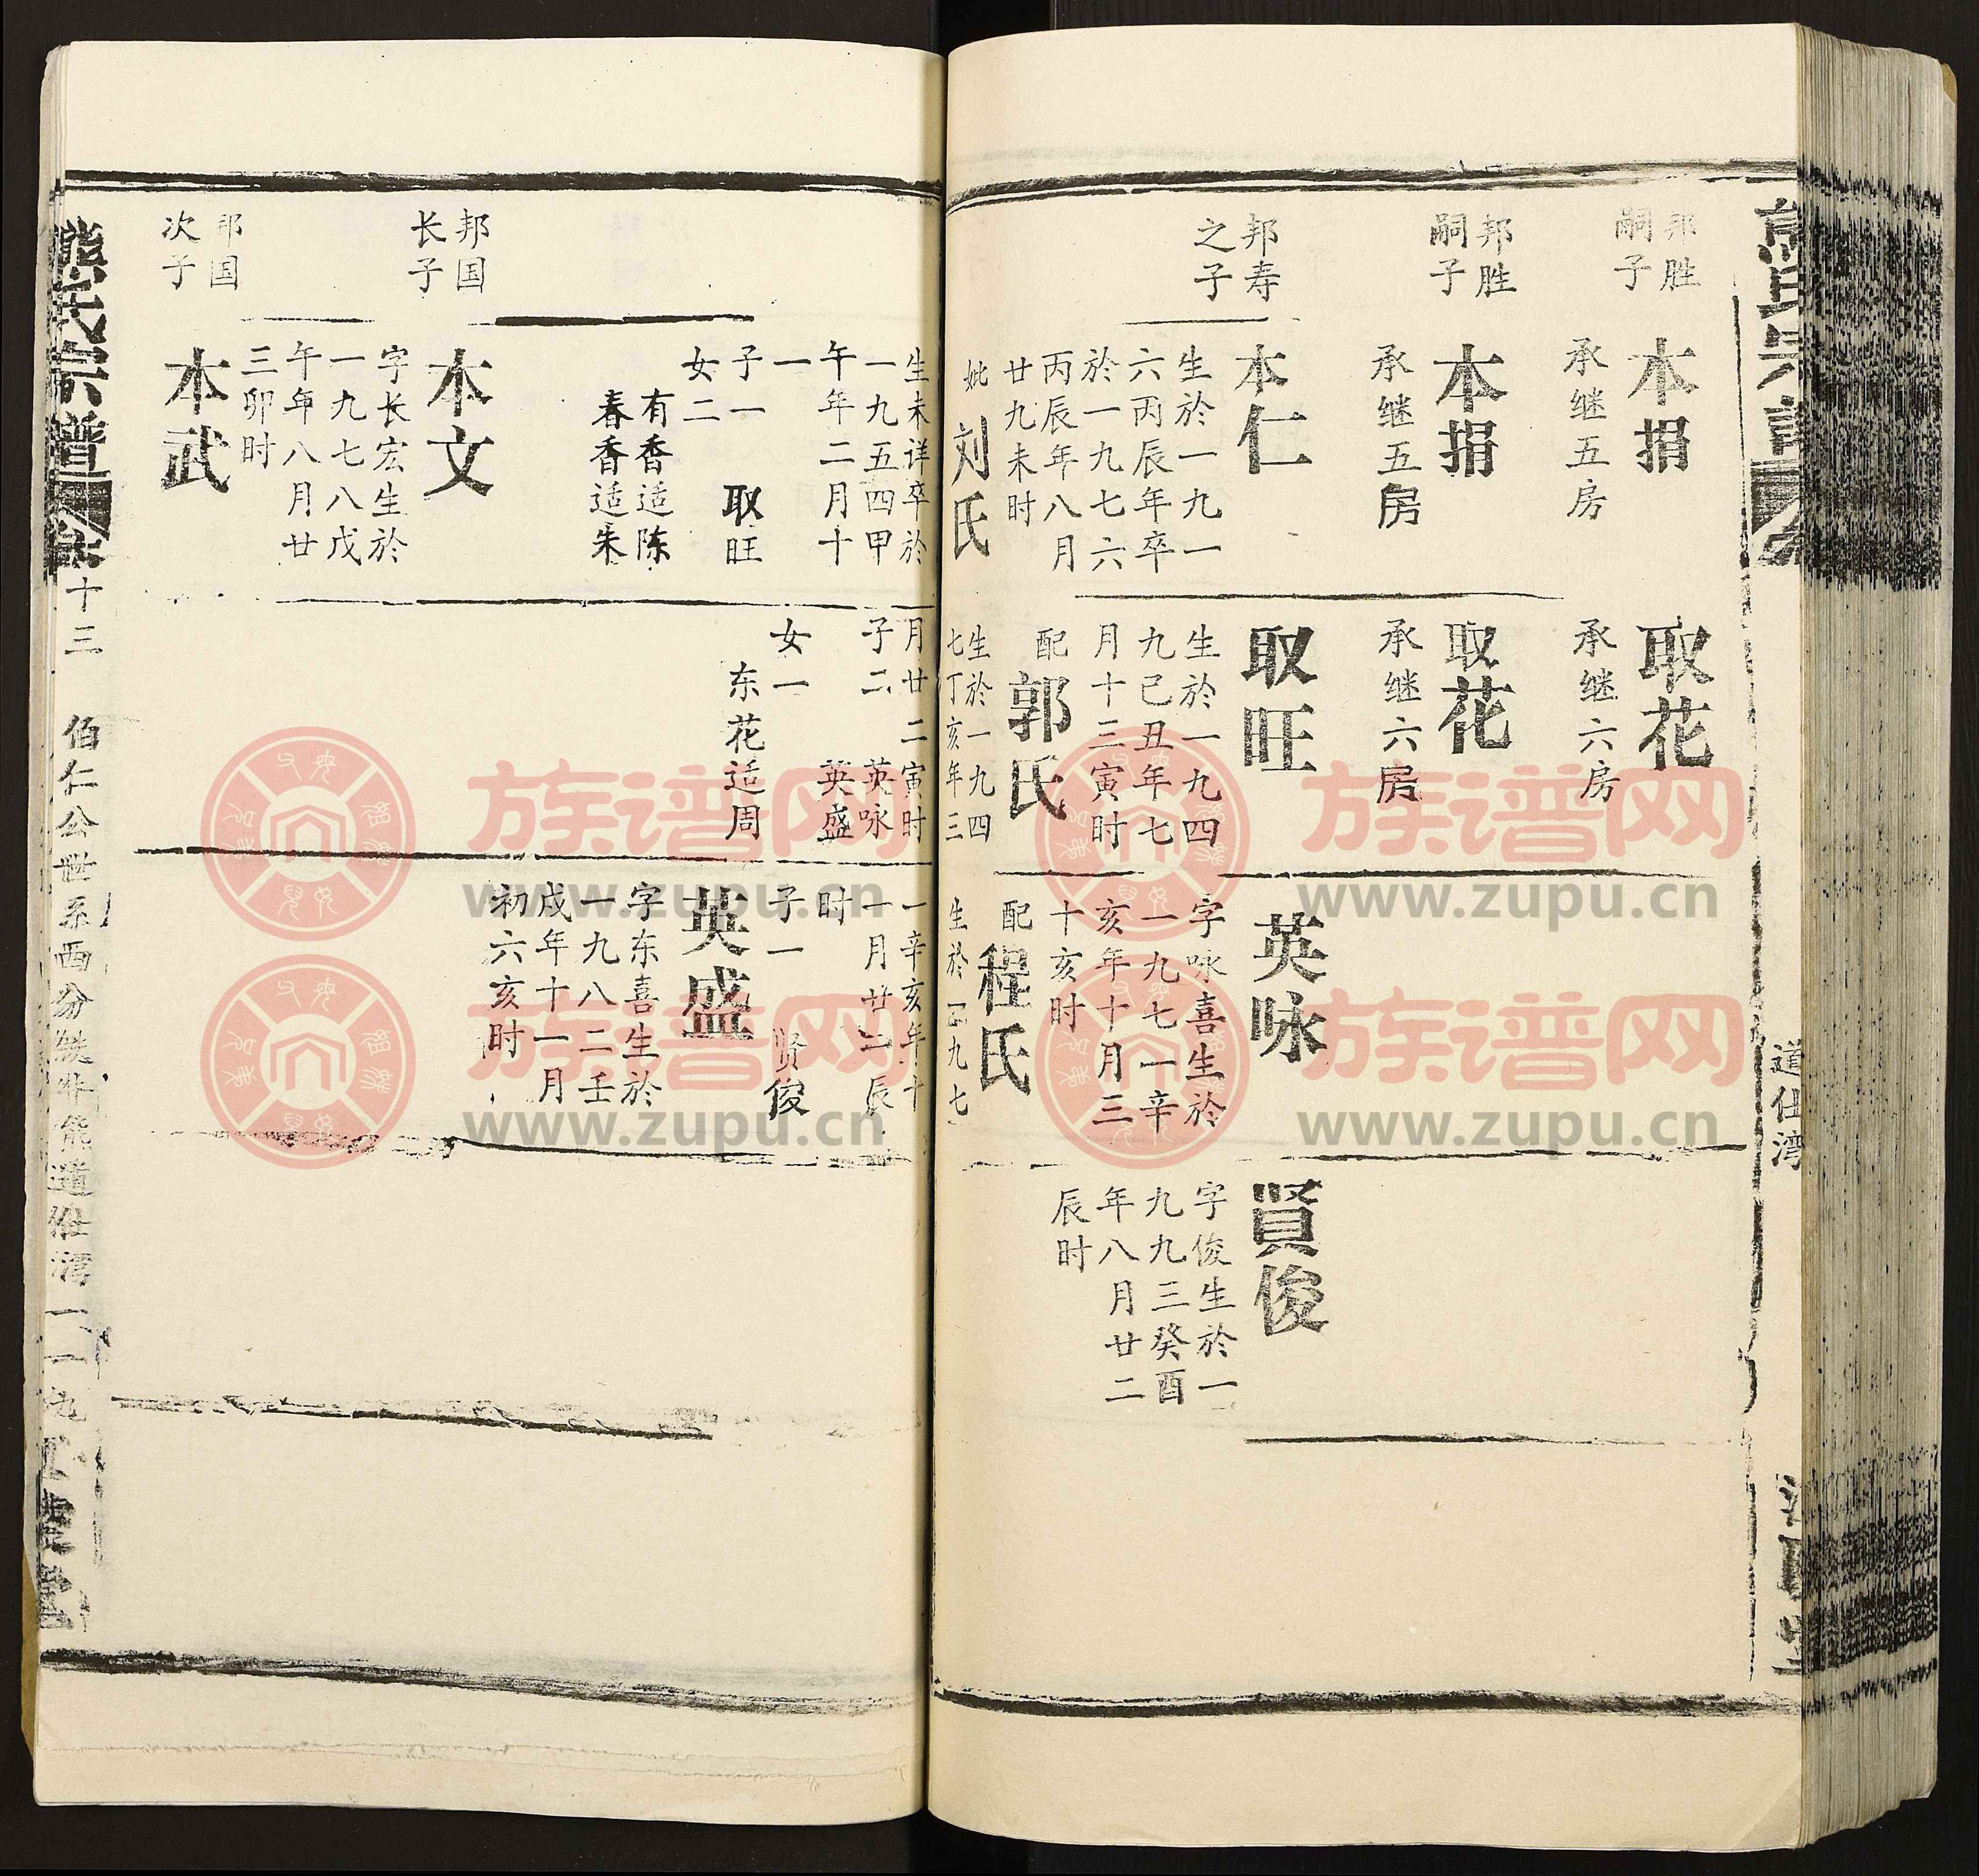 道仕湾
邦胜
嗣子
本捐
承继五房
取花
承继六房
邦胜
嗣子
本捐
承继五房
取花
承继六房
邦寿
之子
本仁
生於一九一
六丙辰年卒
於一九七六
丙辰年八月
廿九未时
妣刘氏
取旺
生於一九四
九己丑年七
月十三寅时
配郭氏
生於一九四
七丁亥年三
英咏
字咏喜生於
一九七一辛
亥年十月三
十亥时
配程氏
生於一九七
賢俊
字俊生於一
九九三癸酉
年八月廿二
辰时
生未详卒於
一九五四甲
午年二月十
一
子一 取旺
女二
有香适陈
春香适朱
月廿二寅时
子二 英咏
英盛
女一
东花适周
一辛亥年十
一月廿二辰
时
子一 贤俊
英盛
字东喜生於
一九八二壬
戌年十一月
初六亥时
邦国
长子
本文
字长宏生於
一九七八戊
午年八月廿
三卯时
邦国
次子
本武
熊氏宗譜
卷十三 伯仁公世系西分
道仕湾一一九
族谱网
www.zupu.cn
族谱网
www.zupu.cn
族谱网
www.zupu.cn
族谱网
www.zupu.cn